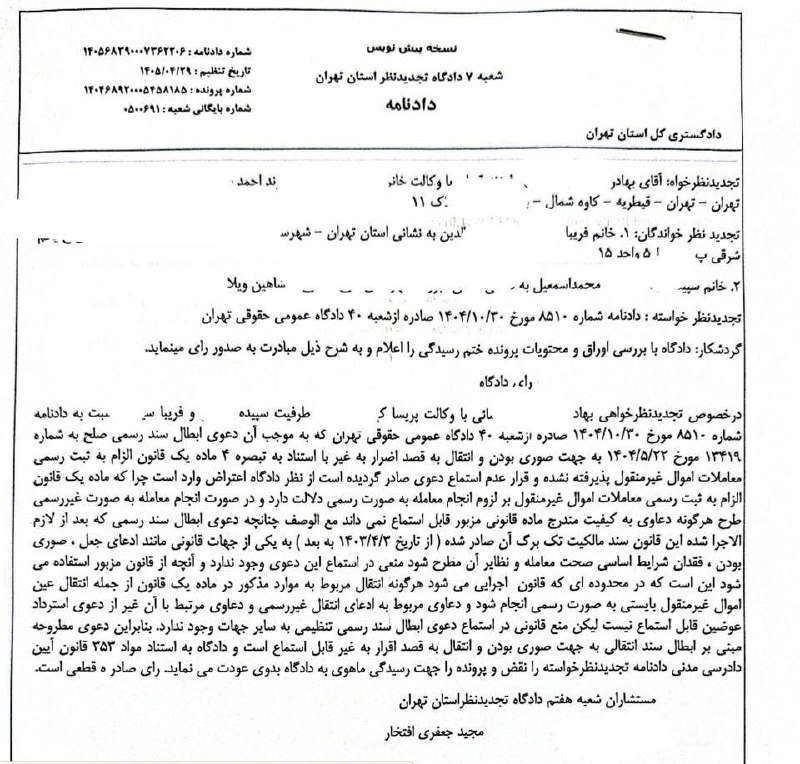 نسخه پیش نویس
شعبه ۷ دادگاه تجدیدنظر استان تهران
دادنامه
شماره دادنامه : ۱۴۰۵۶۸۳۹۰۰۰۷۳۶۲۲۰۶
تاریخ تنظیم : ۱۴۰۵/۰۴/۲۹
شماره پرونده : ۱۴۰۴۶۸۹۲۰۰۰۵۴۵۸۱۸۵
شماره بایگانی شعبه : ۰۵۰۰۶۹۱
دادگستری کل استان تهران
تجدیدنظرخواه: آقای بهادر با وکالت خانم احمد
تهران - تهران - قیطریه - کاوه شمال - ۱۱
تجدید نظر خواندگان: ۱. خانم فریبا الدین به نشانی استان تهران - شهرس
شرقی پ ۵ واحد ۱۵
۲. خانم سپید محمداسمعیل به شاهین ویلا
تجدیدنظر خواسته : دادنامه شماره ۸۵۱۰ مورخ ۱۴۰۴/۱۰/۳۰ صادره ازشعبه ۴۰ دادگاه عمومی حقوقی تهران
گردشکار: دادگاه با بررسی اوراق و محتویات پرونده ختم رسیدگی را اعلام و به شرح ذیل مبادرت به صدور رای مینماید.
رای دادگاه
درخصوص تجدیدنظرخواهی بهاد با وکالت پریسا طرفیت سپیده و فریبا نسبت به دادنامه
شماره ۸۵۱۰ مورخ ۱۴۰۴/۱۰/۳۰ صادره ازشعبه ۴۰ دادگاه عمومی حقوقی تهران که به موجب آن دعوی ابطال سند رسمی صلح به شماره
۱۳۴۱۹ مورخ ۱۴۰۴/۵/۲۲ به جهت صوری بودن و انتقال به قصد اضرار به غیر با استناد به تبصره ۴ ماده یک قانون الزام به ثبت رسمی
معاملات اموال غیرمنقول پذیرفته نشده و قرار عدم استماع دعوی صادر گردیده است از نظر دادگاه اعتراض وارد است چرا که ماده یک قانون
الزام به ثبت رسمی معاملات اموال غیرمنقول بر لزوم انجام معامله به صورت رسمی دلالت دارد و در صورت انجام معامله به صورت غیررسمی
طرح هرگونه دعاوی به کیفیت مندرج ماده قانونی مزبور قابل استماع نمی داند مع الوصف چنانچه دعوی ابطال سند رسمی که بعد از لازم
الاجرا شده این قانون سند مالکیت تک برگ آن صادر شده ( از تاریخ ۱۴۰۳/۴/۳ به بعد ) به یکی از جهات قانونی مانند ادعای جعل ، صوری
بودن ، فقدان شرایط اساسی صحت معامله و نظایر آن مطرح شود منعی در استماع این دعوی وجود ندارد و آنچه از قانون مزبور استفاده می
شود این است که در محدوده ای که قانون اجرایی می شود هرگونه انتقال مربوط به موارد مذکور در ماده یک قانون از جمله انتقال عین
اموال غیرمنقول بایستی به صورت رسمی انجام شود و دعاوی مربوط به ادعای انتقال غیررسمی و دعاوی مرتبط با آن غیر از دعوی استرداد
عوضین قابل استماع نیست لیکن منع قانونی در استماع دعوی ابطال سند رسمی تنظیمی به سایر جهات وجود ندارد. بنابراین دعوی مطروحه
مبنی بر ابطال سند انتقالی به جهت صوری بودن و انتقال به قصد اقرار به غیر قابل استماع است و دادگاه به استناد مواد ۳۵۳ قانون آیین
دادرسی مدنی دادنامه تجدیدنظرخواسته را نقض و پرونده را جهت رسیدگی ماهوی به دادگاه بدوی عودت می نماید. رای صادر ه قطعی است.
مستشاران شعبه هفتم دادگاه تجدیدنظراستان تهران
مجید جعفری افتخار